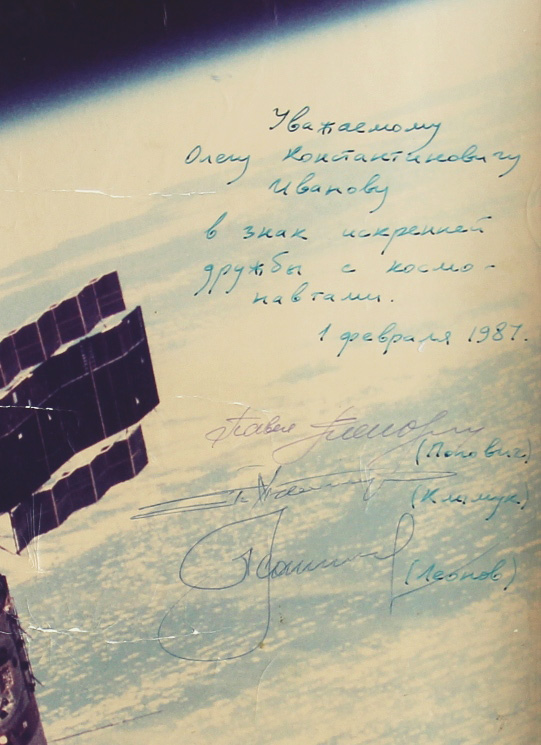 Уважаемому
Олегу Константиновичу
Иванову
в знак искренней
дружбы с космо-
навтами.
1 февраля 1987.
Павел Попович
(Попович)
(Климук)
(Леонов)